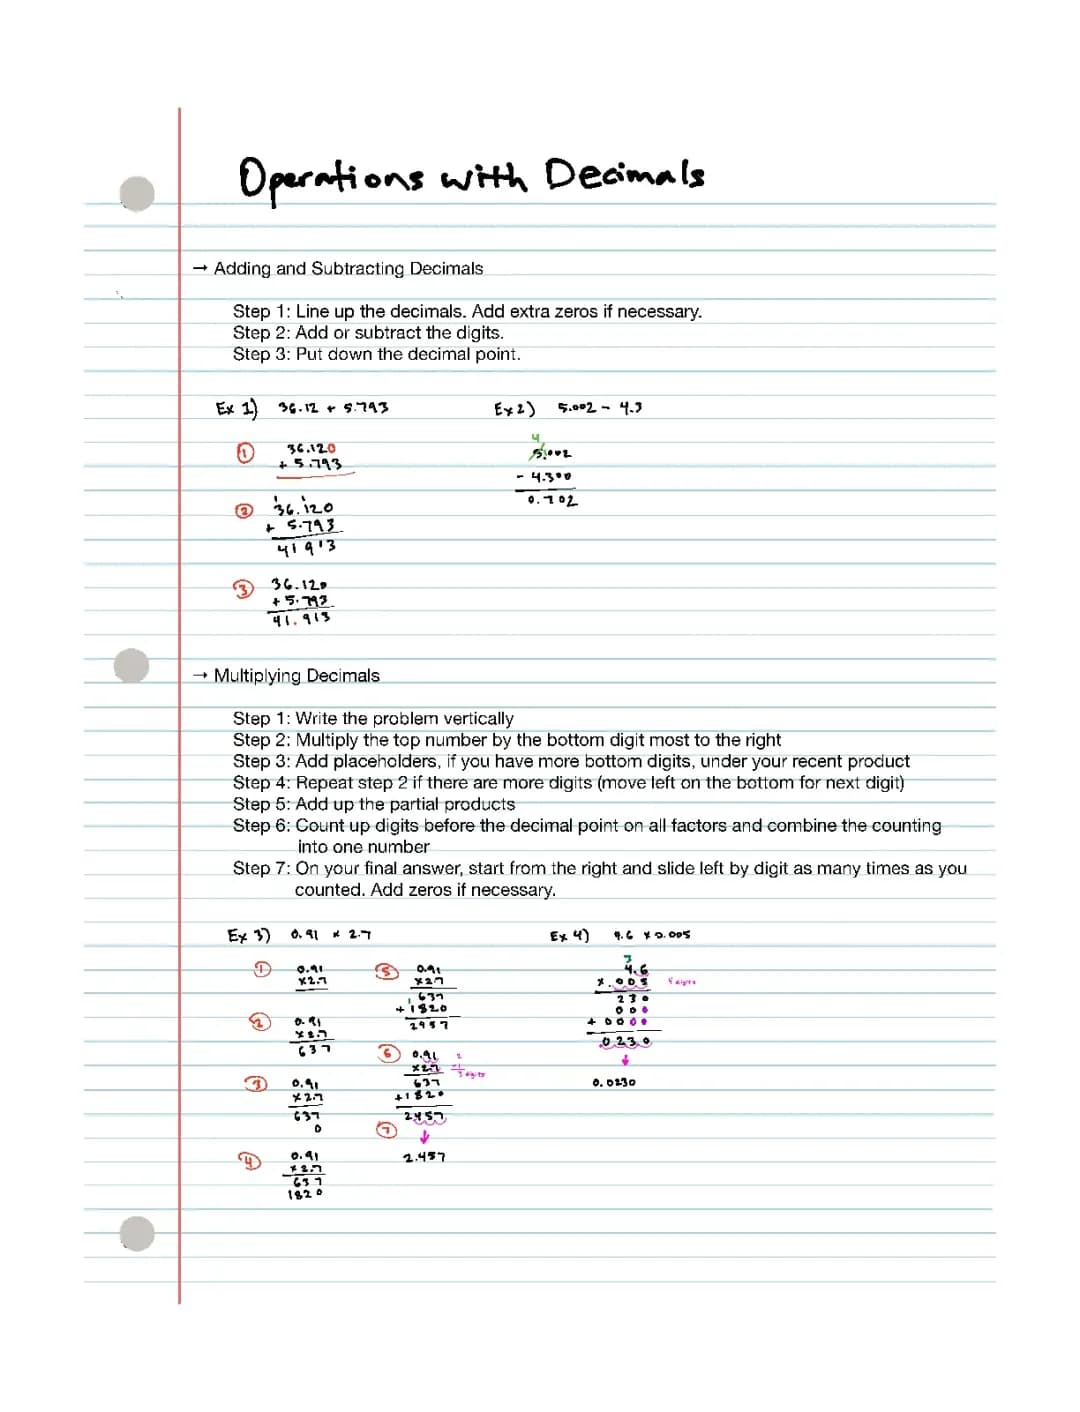 Operations with Decimals
→ Adding and Subtracting Decimals
Step 1: Line up the decimals. Add extra zeros if necessary.
Step 2: Add or subtract the digits.
Step 3: Put down the decimal point.
Ex 1) 36.12 + 5.793
Ex 2) 5.002 - 4.3
①
36.120
+ 5.793
4
5.002
- 4.300
0.702
②
1 1
36.120
+ 5.793
41 913
③
36.120
+ 5.793
41.913
→ Multiplying Decimals
Step 1: Write the problem vertically
Step 2: Multiply the top number by the bottom digit most to the right
Step 3: Add placeholders, if you have more bottom digits, under your recent product
Step 4: Repeat step 2 if there are more digits (move left on the bottom for next digit)
Step 5: Add up the partial products
Step 6: Count up digits before the decimal point on all factors and combine the counting
into one number
Step 7: On your final answer, start from the right and slide left by digit as many times as you
counted. Add zeros if necessary.
Ex 3) 0.91 x 2.7
①
0.91
x2.7
②
0.91
x2.7
637
③
0.91
x2.7
637
0
④
0.91
x2.7
637
1820
⑤
0.91
x27
1
637
+1820
⑥
0.91 2
x2.7 +1
3 digits
637
+1820
2457
⑦
↓
2.457
Ex 4) 4.6 x 0.005
3
4.6
x .005 5 digits
230
000
+ 0000
0230
↓
0.0230